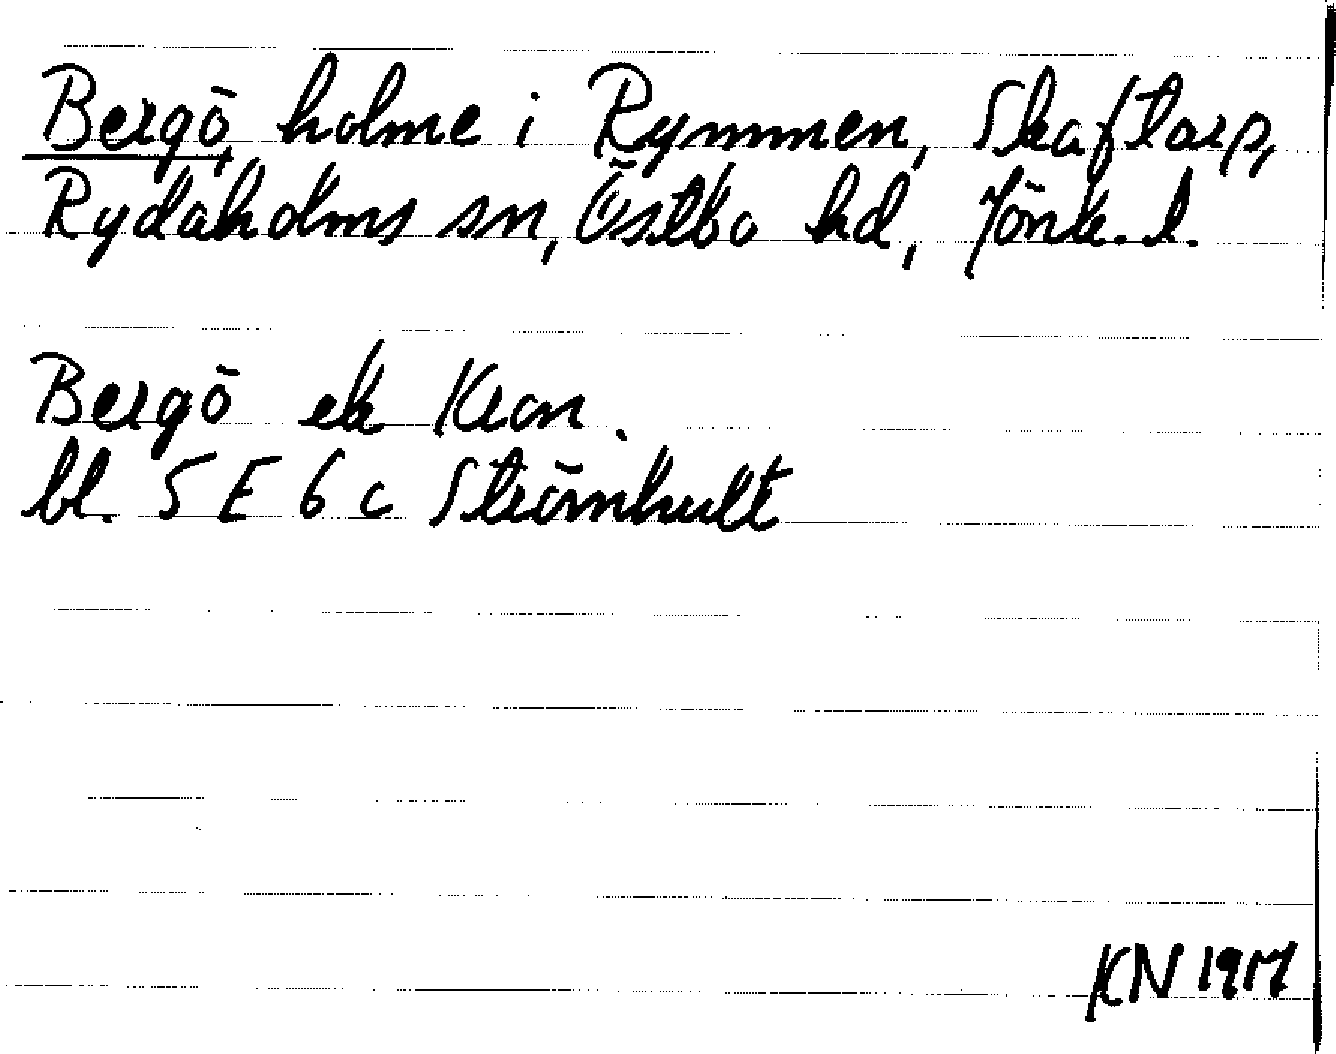 Bergö, holme i Rymmen, Skaftarp,
Rydaholms sn, Östbo hd, Jönk. l.
Bergö ek Kron.
bl. 5 E 6 c Strömhult
KN